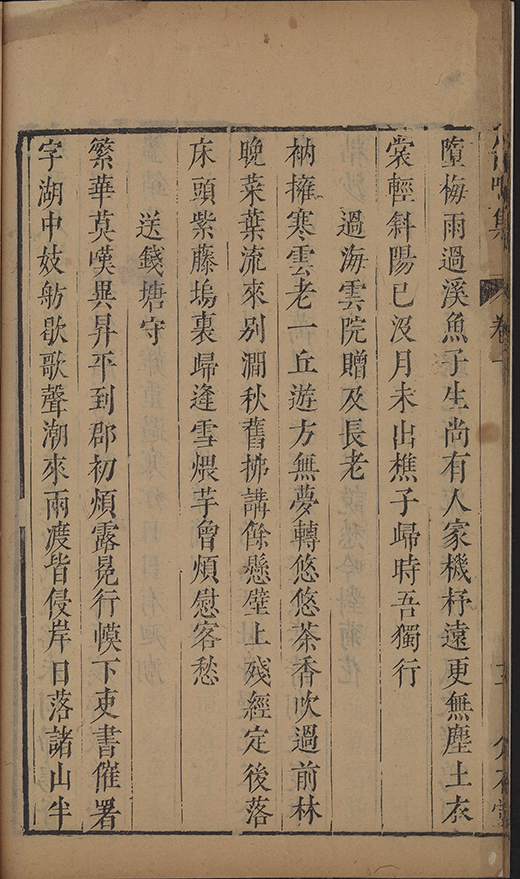 墮梅雨過溪魚子生尚有人家機杼遠更無塵土衣
裳輕斜陽已沒月未出樵子歸時吾獨行
過海雲院贈及長老
衲擁寒雲老一丘遊方無夢轉悠悠茶香吹過前林
晚菜葉流來別澗秋舊拂講餘懸壁上殘經定後落
床頭紫藤塢裏歸逢雪煨芋曾煩慰客愁
送錢塘守
繁華莫嘆異昇平到郡初煩露冕行幙下吏書催署
字湖中妓舫歇歌聲潮來兩渡皆侵岸日落諸山半